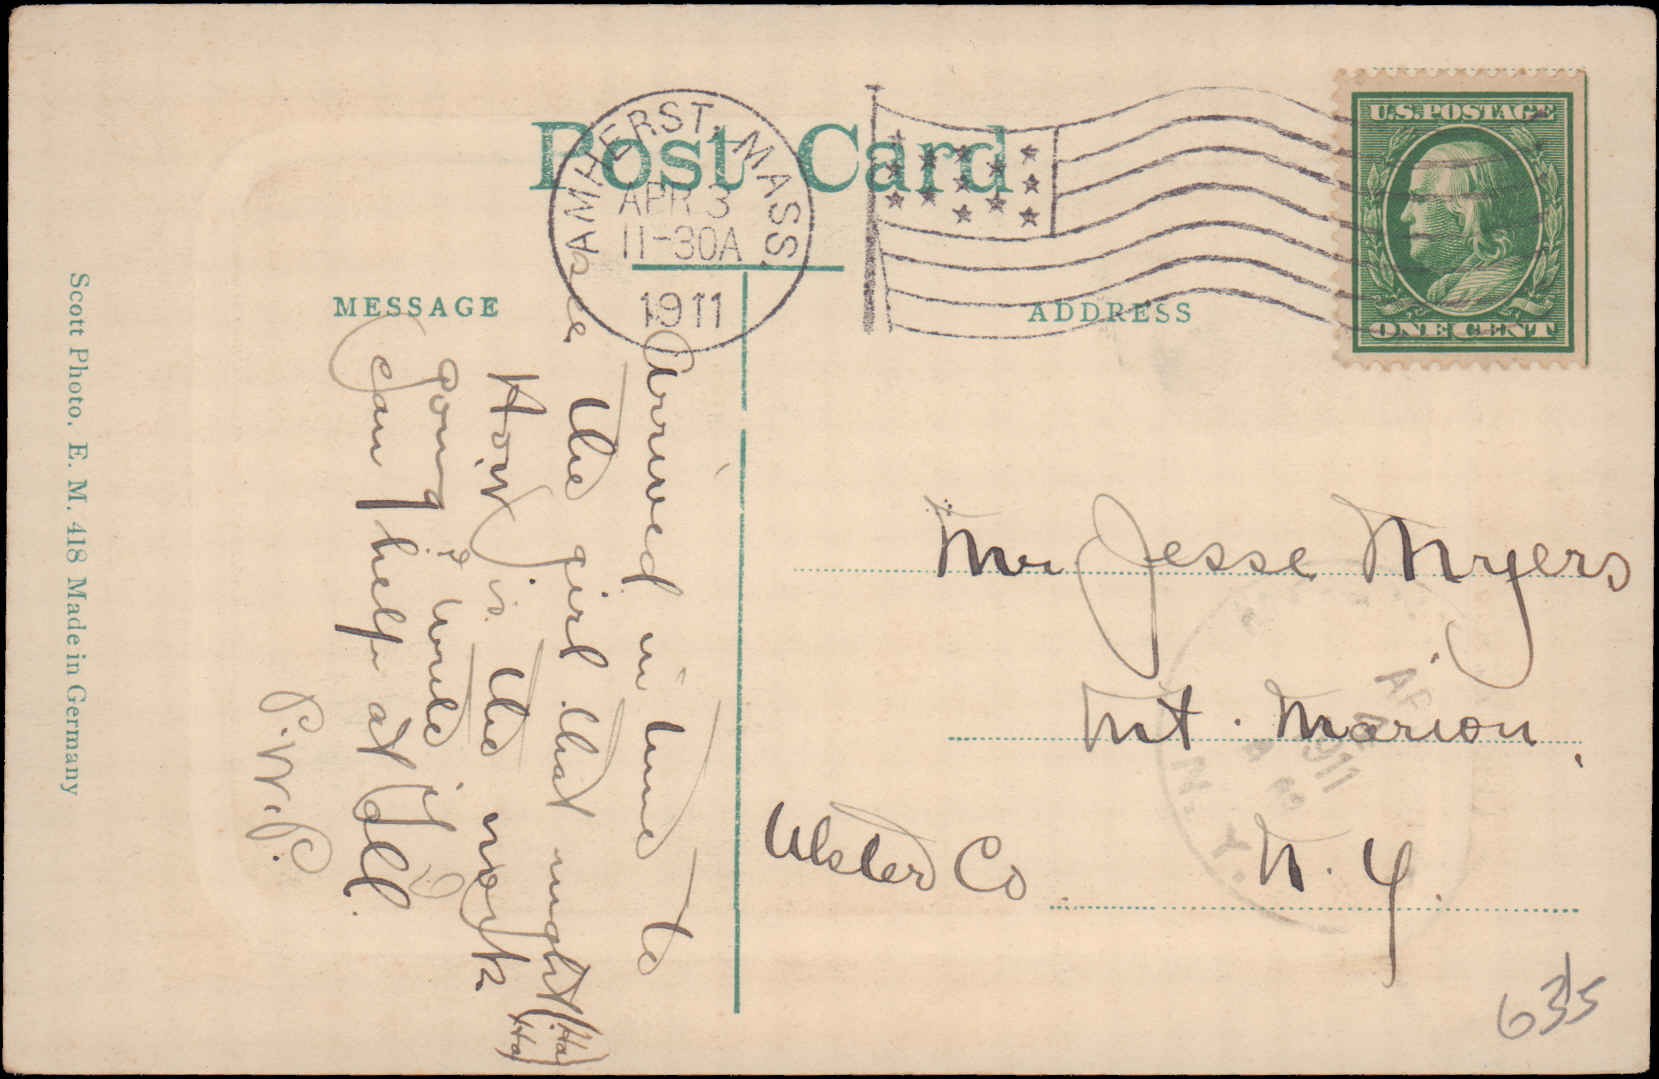 Post Card
AMHERST, MASS.
APR 3
11-30A
1911
MESSAGE
ADDRESS
U.S. POSTAGE
ONE CENT
Arrived in time to
see the girl that night (Ha Ha)
How is the work
going? Write if I
can help at all.
P.W.P.
Mr Jesse Myers
Mt. Marion,
Ulster Co. N.Y.
1911
N. Y.
635
Scott Photo. E. M. 418 Made in Germany